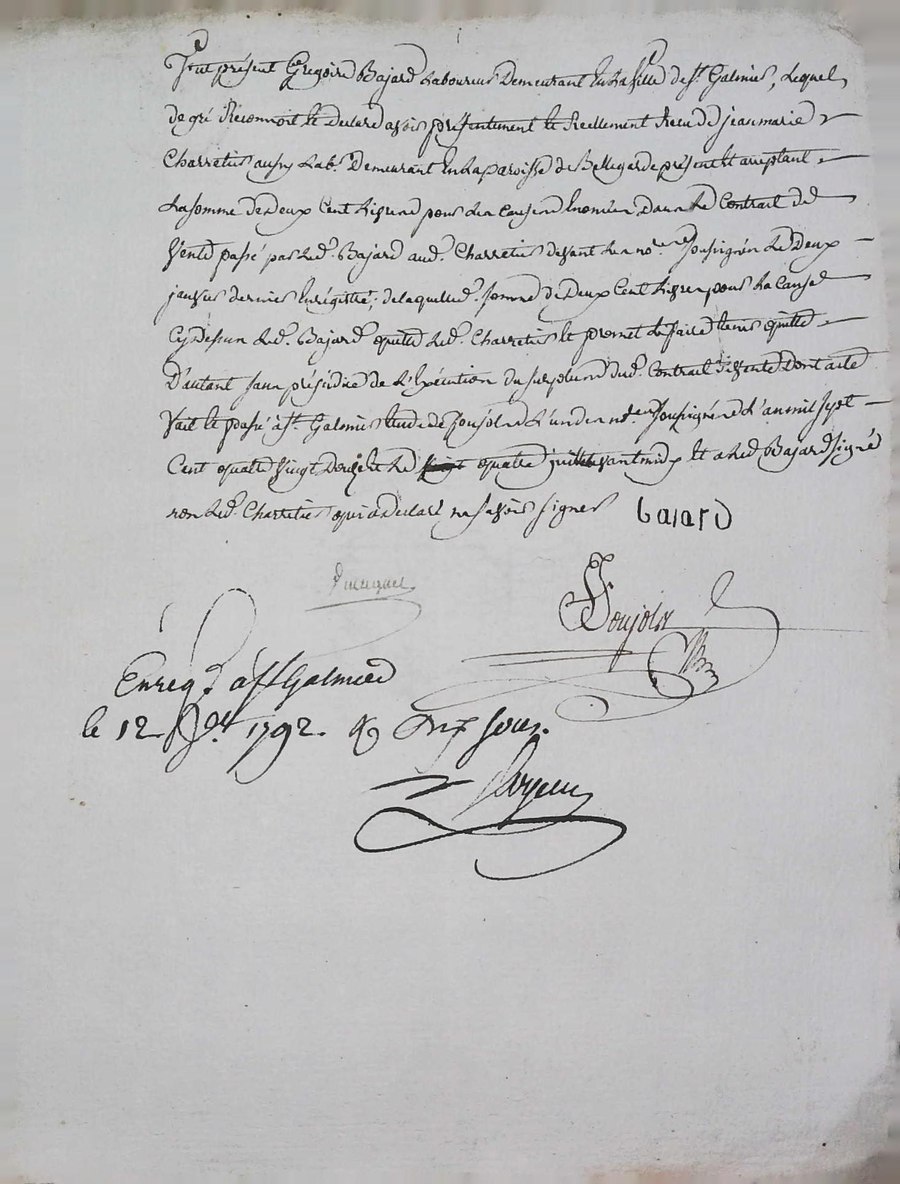 fut présent Grégoire Bajard Laboureur Demeurant En La Ville de St. Galmier, Lequel
de gré Reconnoit et Declare avoir présentement et Reellement Recu de jeanmarie
Charretier aussy Lab.r Demeurant En La paroisse de Bellegarde présent et acceptant
La somme de Deux Cent Livres pour Les Causes Enoncées Dans Le Contrait de
Vente passé par Led. Bajard aud. Charretier devant Les no.res soussignés Le Deux
janvier dernier Enrégistré; de laquelle d. somme de Deux Cent Livres pour La Cause
Cy Dessus Led. Bajard quitte Led. Charretier et promet Le faire tenir quitte
D'autant sans préjudice de L'Exécution du surplus dud. Contrait de Vente Dont acte
fait et passé à St. Galmier Etude de Poujola L'un des no.res soussignés L'an mil sept
Cent quatre vingt Douze et Le quatre juillet avant midy et a Led. Bajard signé
non Led. Charretier qui a Declaré ne savoir signer bajard
Poujola
Enreg.é à St Galmier
le 12 1792. R Dix sous.